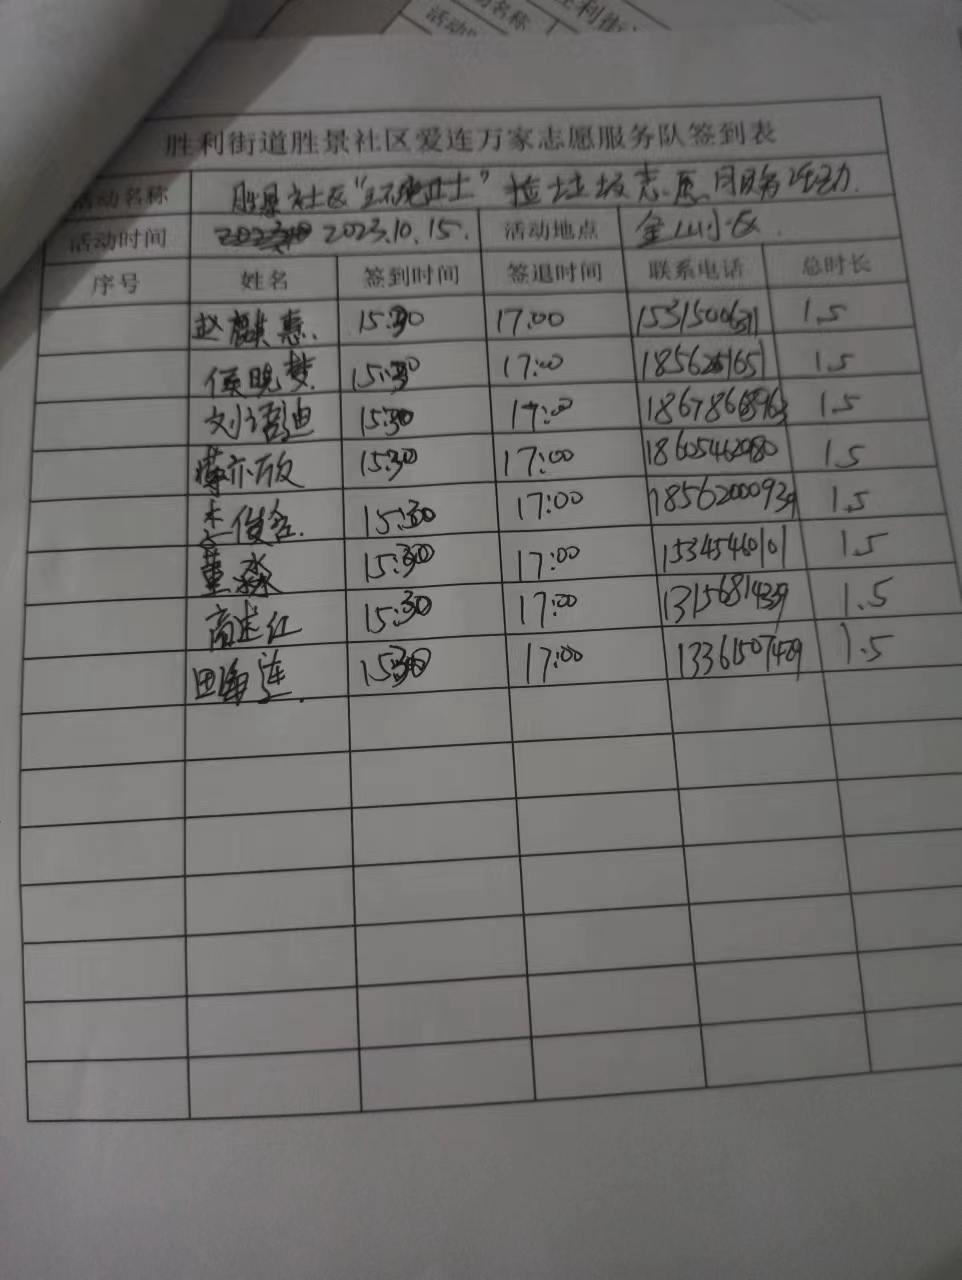 活动名称
胜利街道胜景社区爱连万家志愿服务队签到表
活动名称 胜景社区“环境卫士”捡垃圾志愿服务活动.
活动时间 2023.10.15. 活动地点 金山小区.
序号 姓名 签到时间 签退时间 联系电话 总时长
赵 惠. 15:30 17:00 1.5
侯晓梦 15:30 17:00 1.5
刘语迪 15:30 17:00 1.5
亦欣 15:30 17:00 18605462980 1.5
李俊含. 15:30 17:00 18562000939 1.5
董淼 15:30 17:00 15345460101 1.5
高建红 15:30 17:00 13156814339 1.5
田海莲. 15:30 17:00 13361507409 1.5